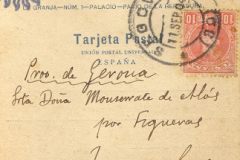 GRANJA.-NÚM. 1.-PALACIO.-PATIO DE LA HERRADURA
Tarjeta Postal
UNIÓN POSTAL UNIVERSAL
ESPAÑA
11 SEP
10 10
Prov. de Gerona
Srta Doña Monserrate de Alós
por Figueras